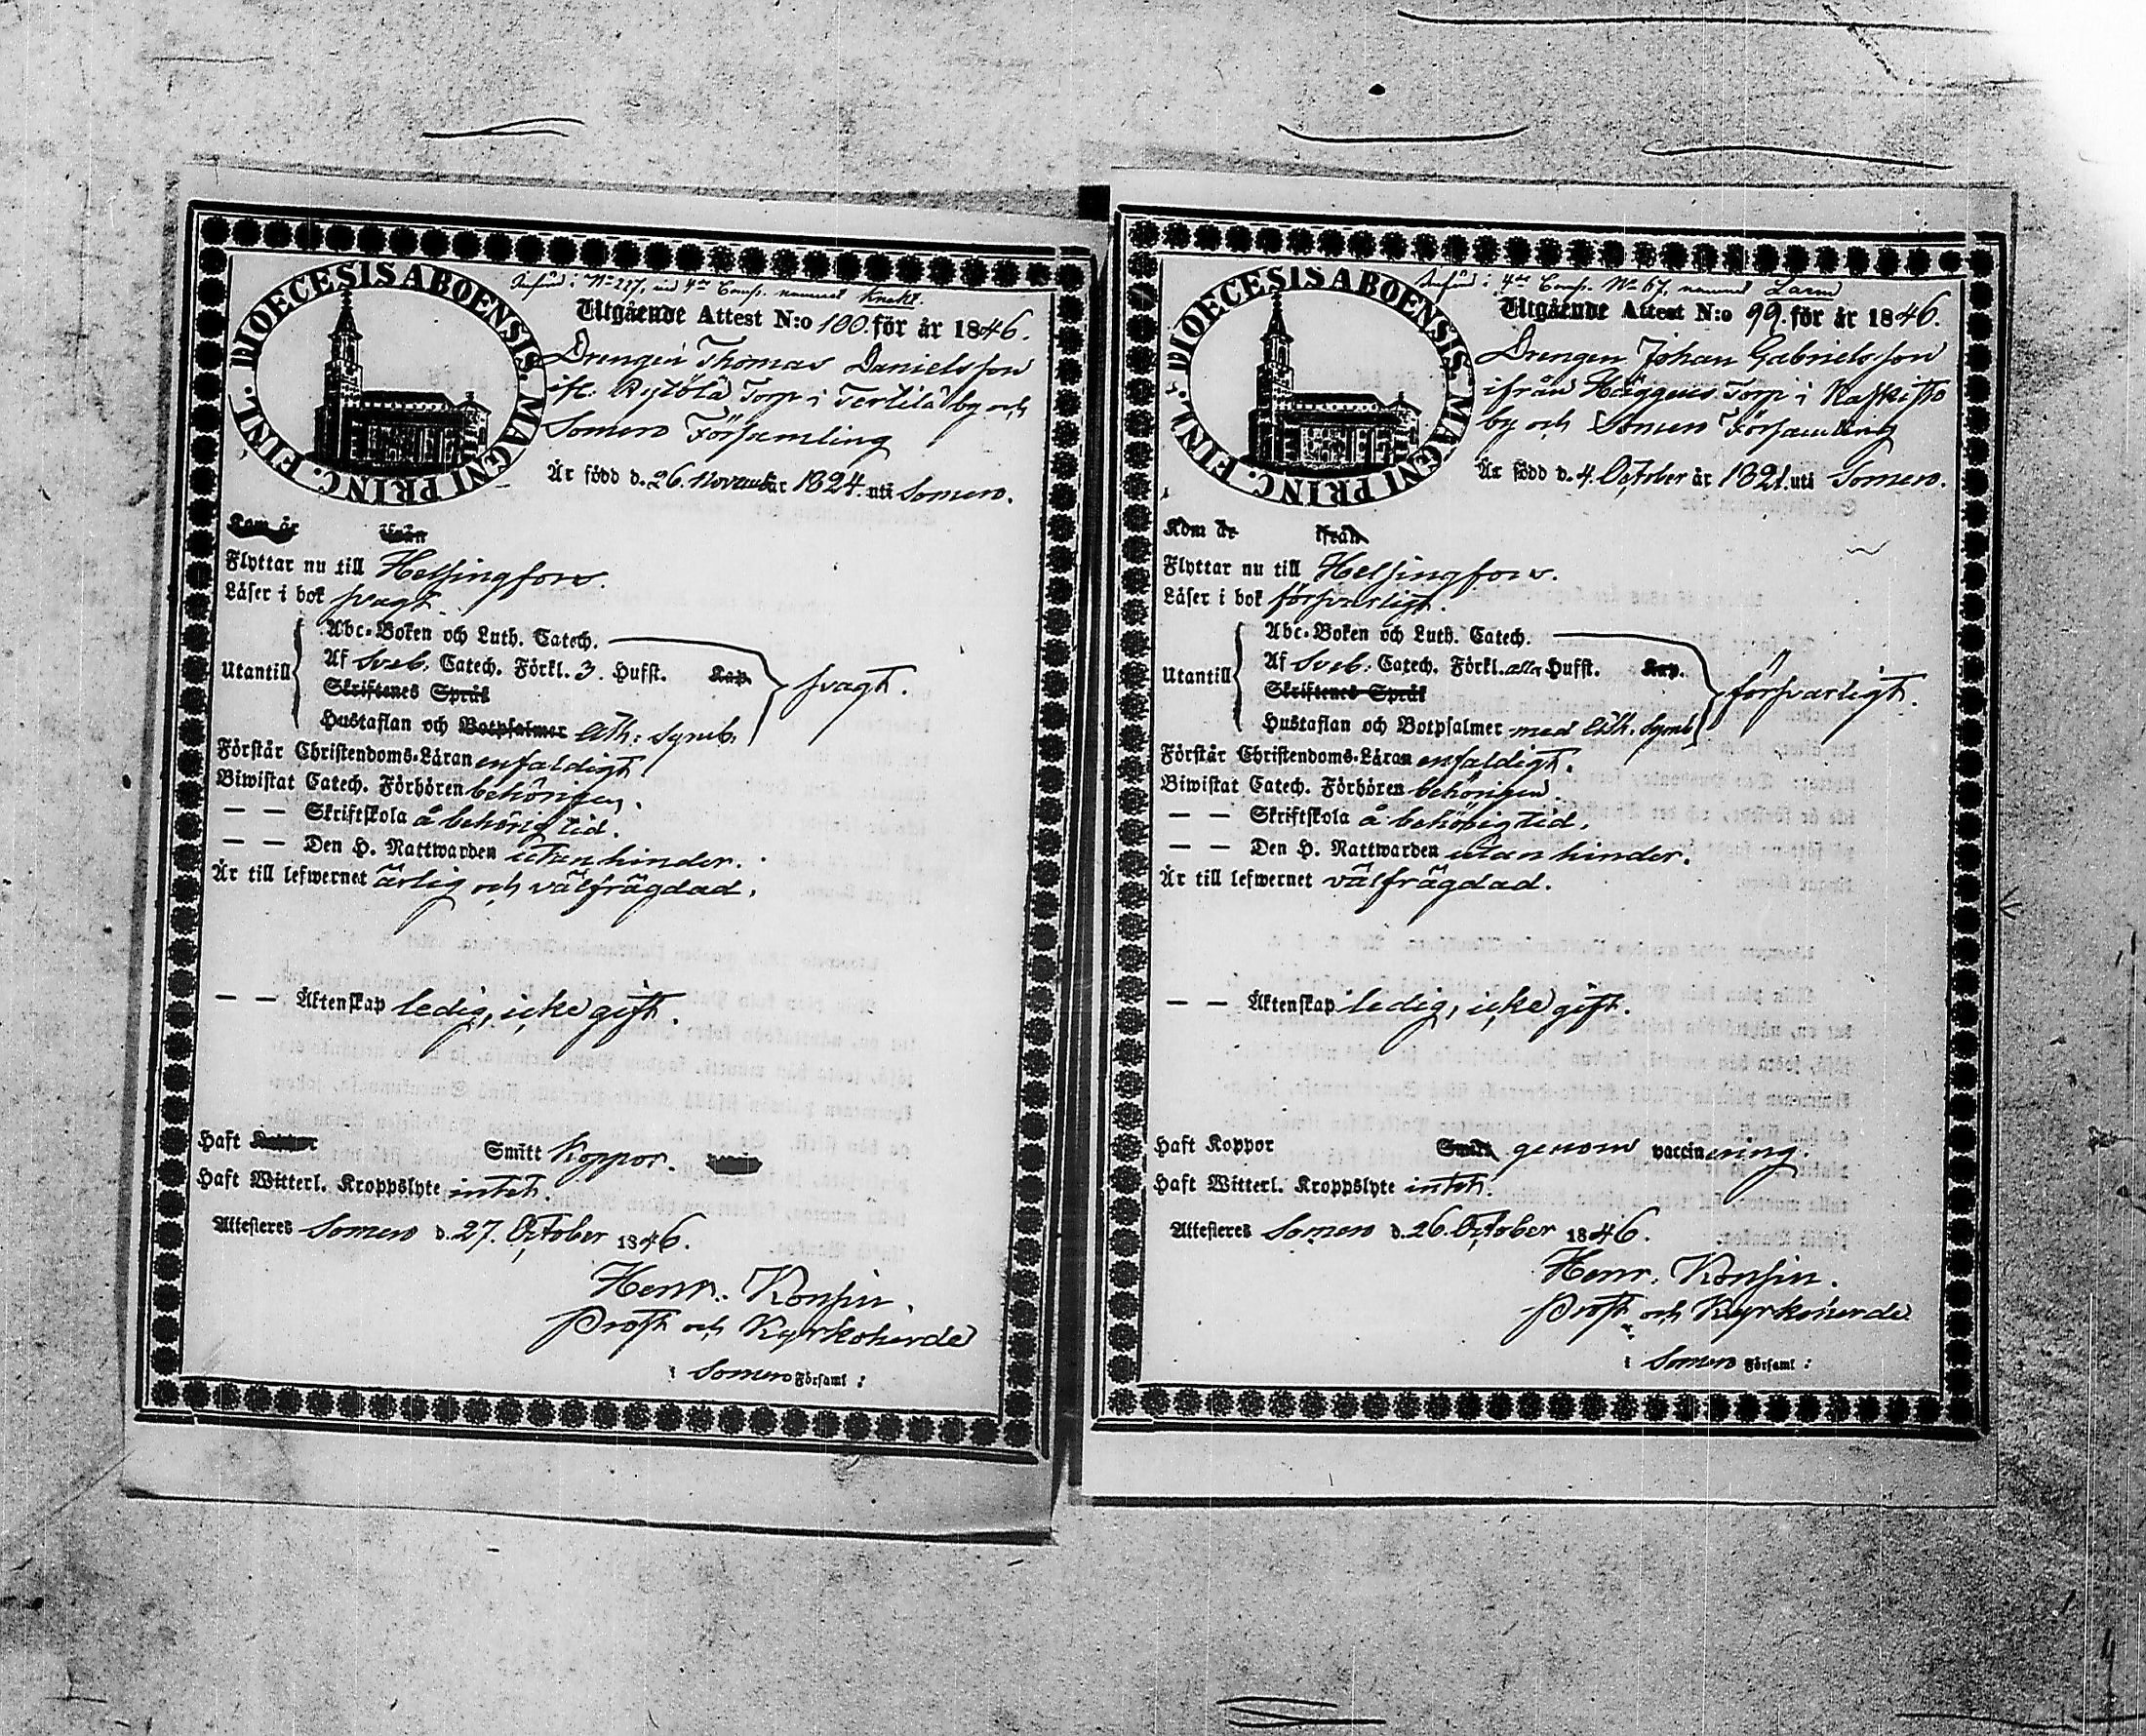 DIOECESIS ABOENSIS. MAGNI PRINC. FINL.
Införd i No 227, vid 4de Comp. nummer Knekt.
Utgående Attest N:o 100. för år 1846.
Drengen Thomas Danielsson
ifr. Torp i Terttilä by och
Somero Församling
Är född d. 26. November 1824. uti Somero.
Kom år ifrån
Flyttar nu till Helsingfors.
Läser i bok svagt.
Abc-Boken och Luth. Catech.
Utantill Af Sveb. Catech. Förkl. 3. Hufst. Kap. svagt.
Skriftenes Språk
Hustaflan och Botpsalmer Ath: Symb.
Förstår Christendoms-Läran enfaldigt.
Biwistat Catech. Förhören behörigen.
— — Skriftskola å behörig tid.
— — Den H. Nattwarden utan hinder.
Är till lefwernet ärlig och välfrägdad.
— — Äktenskap ledig, icke gift.
Haft Koppor Smitt Koppor.
Haft Witterl. Kroppslyte intet.
Attesteres Somero d. 27. October 1846.
Henr. Konsin.
Prost och Kyrkoherde
i Somero Församl:
DIOECESIS ABOENSIS. MAGNI PRINC. FINL.
Införd i 4de Comp. No 67, nummer Larm
Utgående Attest N:o 99. för år 1846.
Drengen Johan Gabrielsson
ifrån Häggens Torp i Kaskisto
by och Somero Församling
Är född d. 4. October år 1821. uti Somero.
Kom år ifrån
Flyttar nu till Helsingfors.
Läser i bok försvarligt.
Abc-Boken och Luth. Catech.
Utantill Af Sveb. Catech. Förkl. alla Hufst. Kap. försvarligt.
Skriftenes Språk
Hustaflan och Botpsalmer med Ath. Symb
Förstår Christendoms-Läran enfaldigt.
Biwistat Catech. Förhören behörigen.
— — Skriftskola å behörig tid.
— — Den H. Nattwarden utan hinder.
Är till lefwernet välfrägdad.
— — Äktenskap ledig, icke gift.
Haft Koppor Smitt genom vaccinering.
Haft Witterl. Kroppslyte intet.
Attesteres Somero d. 26. October 1846.
Henr. Konsin.
Prost och Kyrkoherde
i Somero Församl: